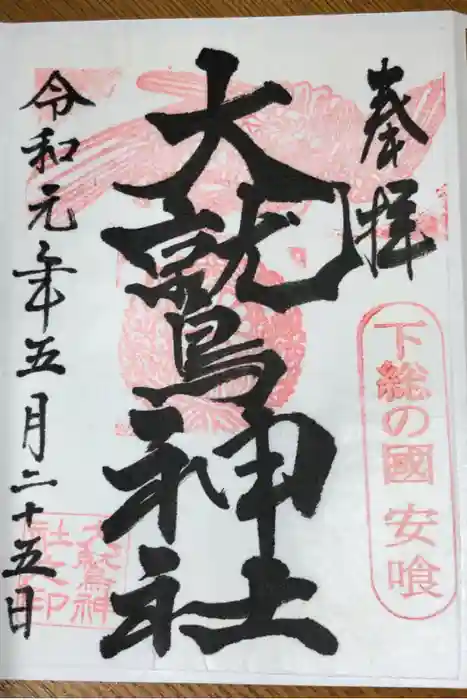 奉拝
下総の國 安喰
大鷲神社
令和元年五月二十五日
大鷲神
社之印